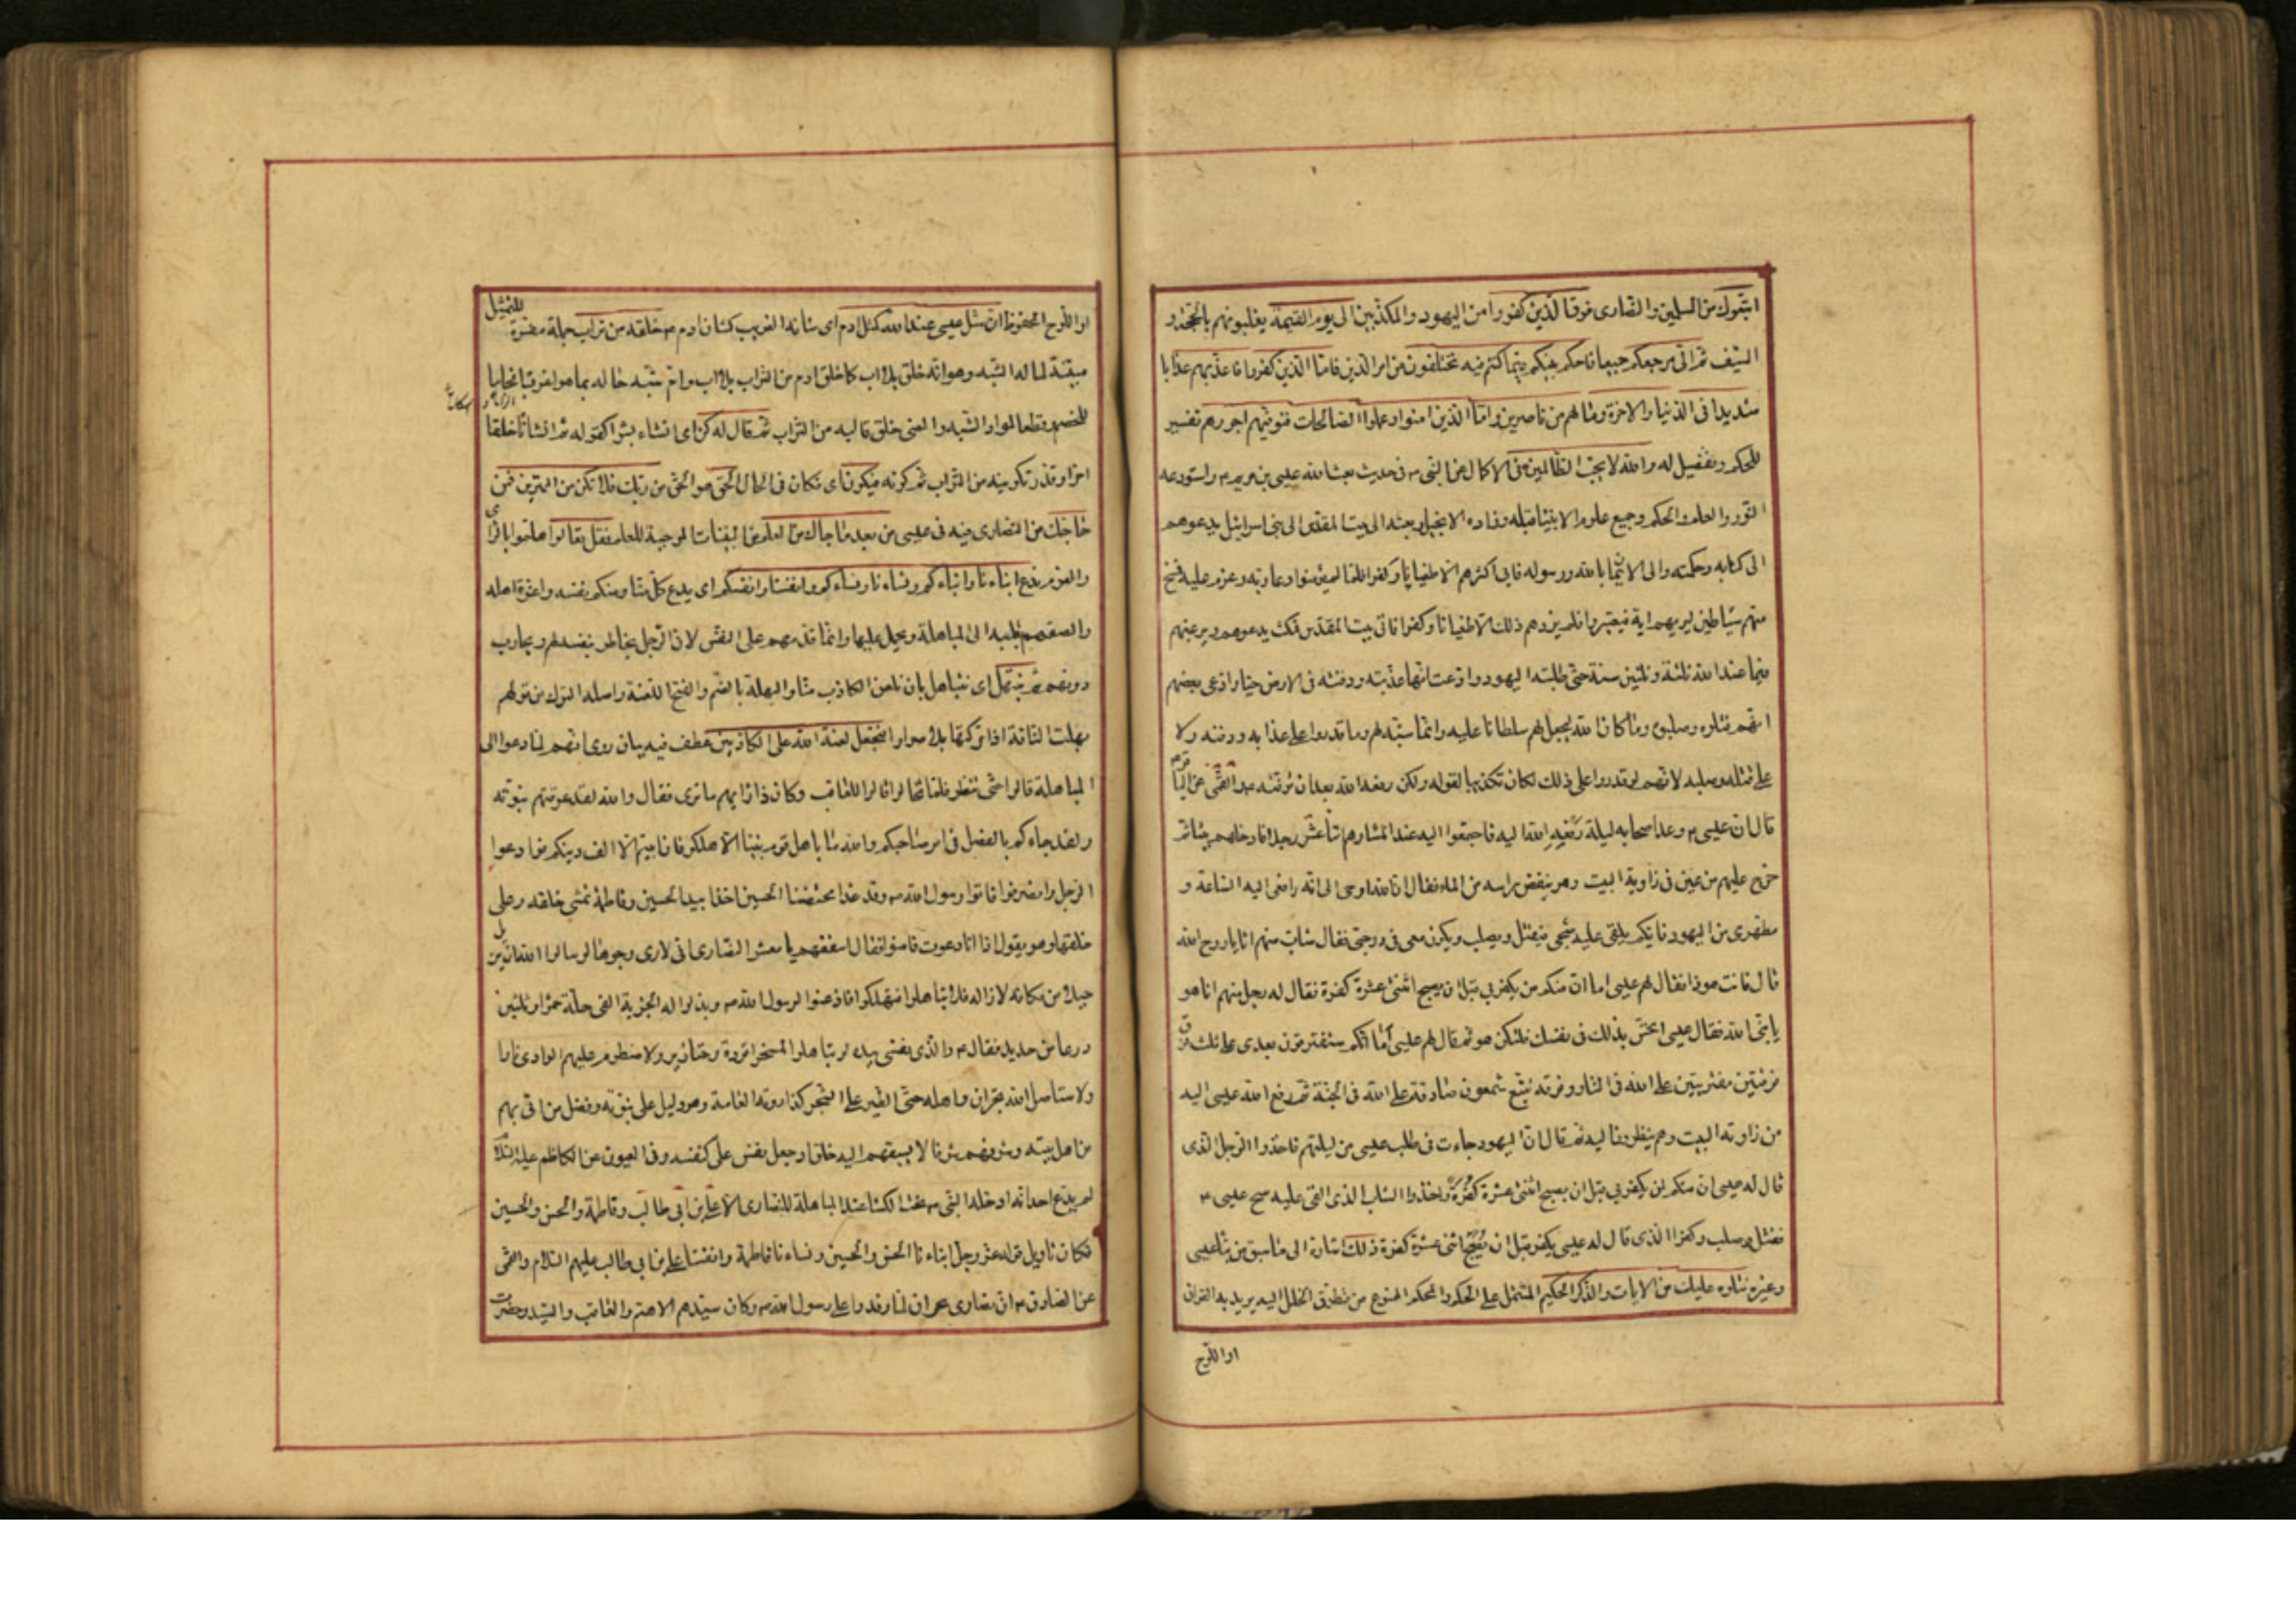 اتبعوك من المسلمين والنصارى فوق الذين كفروا من اليهود والمكذبين الى يوم القيمة يغلبونهم بالحجة و
السيف ثم الى مرجعكم جميعا فاحكم بينكم فيما كنتم فيه تختلفون من امر الدين فاما الذين كفروا فاعذبهم عذابا
شديدا فى الدنيا والاخرة وما لهم من ناصرين واما الذين امنوا وعملوا الصالحات فنوفيهم اجورهم تفسير
للحكم وتفصيل له والله لا يحب الظالمين فى الاكمال عن النبى ص فى حديث بعث الله عيسى بن مريم ع واستودعه
النور والعلم والحكم وجميع علوم الانبياء قبله وزاده الانجيل وبعثه الى بيت المقدس الى بنى اسرائيل يدعوهم
الى كتابه وحكمته والى الايمان بالله ورسوله فابى اكثرهم الا طغيانا وكفرا فلما لم يؤمنوا دعا ربه وعزم عليه فمسخ
منهم شياطين ليريهم اية فيعتبروا فلم يزدهم ذلك الا طغيانا وكفرا فاتى بيت المقدس فمكث يدعوهم ويرغبهم
فيما عند الله ثلثة وثلثين سنة حتى طلبته اليهود وادعت انها عذبته ودفنته فى الارض حيا وادعى بعضهم
انهم قتلوه وصلبوه وما كان الله ليجعل لهم سلطانا عليه وانما شبه لهم وما قدروا على عذابه ودفنه ولا
على قتله وصلبه لانهم لو قدروا على ذلك لكان تكذيبا لقوله ولكن رفعه الله بعد ان توفيه ع والقمى عن الباقر ع
قال ان عيسى ع وعد اصحابه ليلة رفعه الله اليه فاجتمعوا اليه عند المساء وهم اثنا عشر رجلا فادخلهم بيتا ثم
خرج عليهم من عين فى زاوية البيت وهو ينفض راسه من الماء فقال ان الله اوحى الى انه رافعى اليه الساعة و
مطهرى من اليهود فايكم يلقى عليه شبحى فيقتل ويصلب ويكون معى فى درجتى فقال شاب منهم انا يا روح الله
قال فانت هوذا فقال لهم عيسى اما ان منكم من يكفر بى قبل ان يصبح اثنتى عشرة كفرة فقال له رجل منهم انا هو
يا نبى الله فقال عيسى اتحس بذلك فى نفسك فلتكن هو ثم قال لهم عيسى اما انكم ستفترقون بعدى على ثلث فرق
فرقتين مفتريتين على الله فى النار وفرقة تتبع شمعون صادقة على الله فى الجنة ثم رفع الله عيسى اليه
من زاوية البيت وهم ينظرون اليه ثم قال ان اليهود جاءت فى طلب عيسى من ليلتهم فاخذوا الرجل الذى
قال له عيسى ان منكم لمن يكفر بى قبل ان يصبح اثنتى عشرة كفرة واخذوا الشاب الذى القى عليه شبح عيسى ع
فقتل وصلب وكفر الذى قال له عيسى يكفر قبل ان يصبح اثنى عشرة كفرة ذلك اشارة الى ما سبق من نبا عيسى
وغيره نتلوه عليك من الايات والذكر الحكيم المشتمل على الحكم او المحكم الممنوع من تطرق الخلل اليه يريد به القران
او اللوح
او اللوح المحفوظ ان مثل عيسى عند الله كمثل ادم اى شانه الغريب كشان ادم ع خلقه من تراب جملة مفسرة للتمثيل
مبينة لما له الشبه وهو انه خلق بلا اب كما خلق ادم من التراب بلا اب وام شبه حاله بما هو اغرب افحاما
للخصم وقطعا لمواد الشبه والمعنى خلق قالبه من التراب ثم قال له كن اى انشاه بشرا كقوله ثم انشاناه خلقا
اخر او قدر تكوينه من التراب ثم كونه فيكون اى فكان فى الحال الحق هو الحق من ربك فلا تكن من الممترين فمن
حاجك من النصارى فيه فى عيسى من بعد ما جاءك من العلم من البينات الموجبة للعلم فقل تعالوا هلموا بالراى
والعزم ندع ابناءنا وابناءكم ونساءنا ونساءكم وانفسنا وانفسكم اى يدع كل منا ومنكم نفسه واعزة اهله
والصقهم بقلبه الى المباهلة ويحمل عليها وانما قدمهم على النفس لان الرجل يخاطر بنفسه لهم ويحارب
دونهم ثم نبتهل اى نتباهل بان نلعن الكاذب منا والبهلة بالضم والفتح اللعنة واصله الترك من قولهم
بهلت الناقة اذا تركتها بلا صرار فنجعل لعنة الله على الكاذبين عطف فيه بيان روى انهم لما دعوا الى
المباهلة قالوا حتى ننظر فلما تخالوا قالوا للعاقب وكان ذا رايهم ما ترى فقال والله لقد عرفتم نبوته
ولقد جاءكم بالفصل فى امر صاحبكم والله ما باهل قوم نبيا الا هلكوا فان ابيتم الا الف دينكم فوادعوا
الرجل وانصرفوا فاتوا رسول الله ص وقد غدا محتضنا الحسين اخذا بيد الحسن وفاطمة تمشى خلفه وعلى
خلفها وهو يقول اذا انا دعوت فامنوا فقال اسقفهم يا معشر النصارى انى لارى وجوها لو سالوا الله ان يزيل
جبلا من مكانه لازاله فلا تباهلوا فتهلكوا فاذعنوا لرسول الله ص وبذلوا له الجزية الفى حلة حمراء وثلثين
درعا من حديد فقال ع والذى نفسى بيده لو تباهلوا لمسخوا قردة وخنازير ولاضطرم عليهم الوادى نارا
ولاستاصل الله نجران واهله حتى الطير على الشجر كذا روته العامة وهو دليل على نبوته وفضل من اتى بهم
من اهل بيته وشرفهم شرفا لا يسبقهم اليه خلق اذ جعل نفس على كنفسه وفى العيون عن الكاظم عليه السلام
لم يدع احد انه ادخله النبى ص تحت الكساء عند المباهلة للنصارى الا على بن ابى طالب وفاطمة والحسن والحسين
فكان تاويل قوله عز وجل ابناءنا الحسن والحسين ونساءنا فاطمة وانفسنا على بن ابى طالب عليهم السلام والقمى
عن الصادق ع ان نصارى نجران لما وفدوا على رسول الله ص وكان سيدهم الاهتم والعاقب والسيد وحضرت